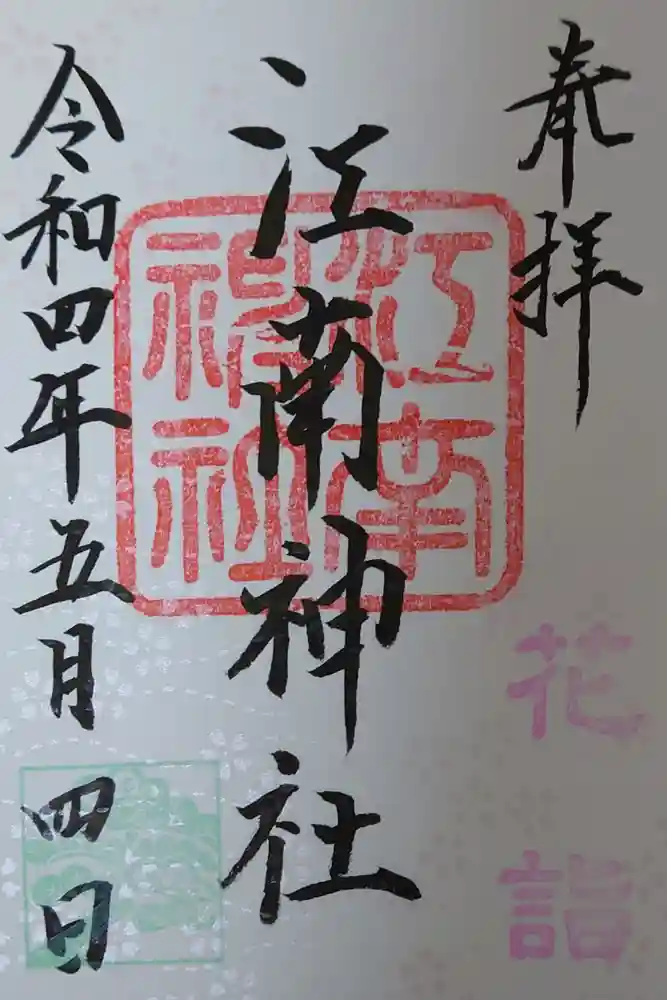 奉拝
花詣
江南神社
江南神社
令和四年五月四日